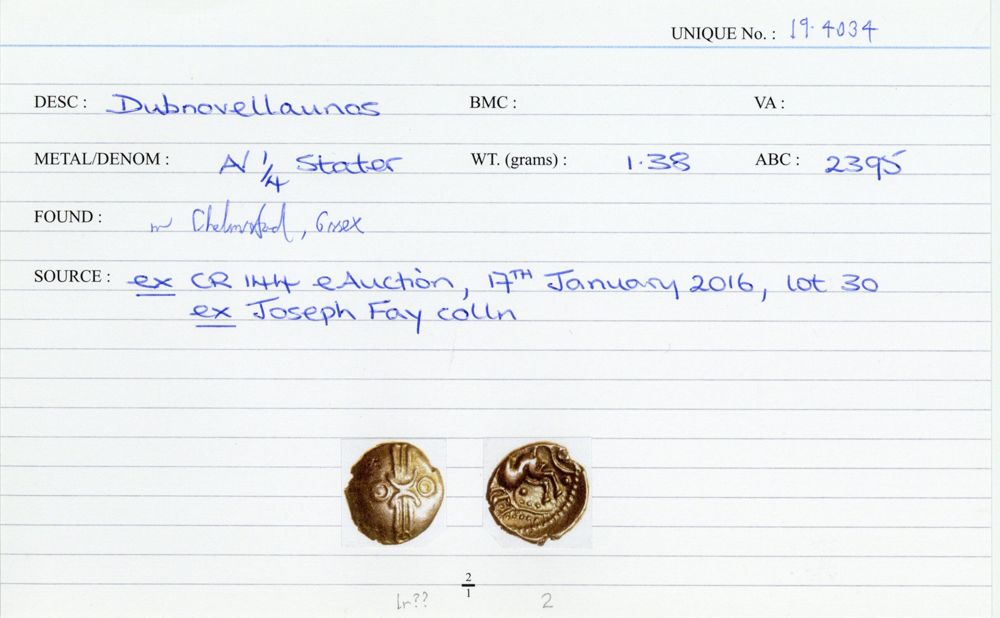 UNIQUE No. : 19.4034
DESC : Dubnovellaunos BMC : VA :
METAL/DENOM : A/ 1/4 Stater WT. (grams) : 1.38 ABC : 2395
FOUND : Chelmsford, Essex
SOURCE : ex CR 144 eAuction, 17TH January 2016, lot 30
ex Joseph Fay colln
2/1
1r?? 2